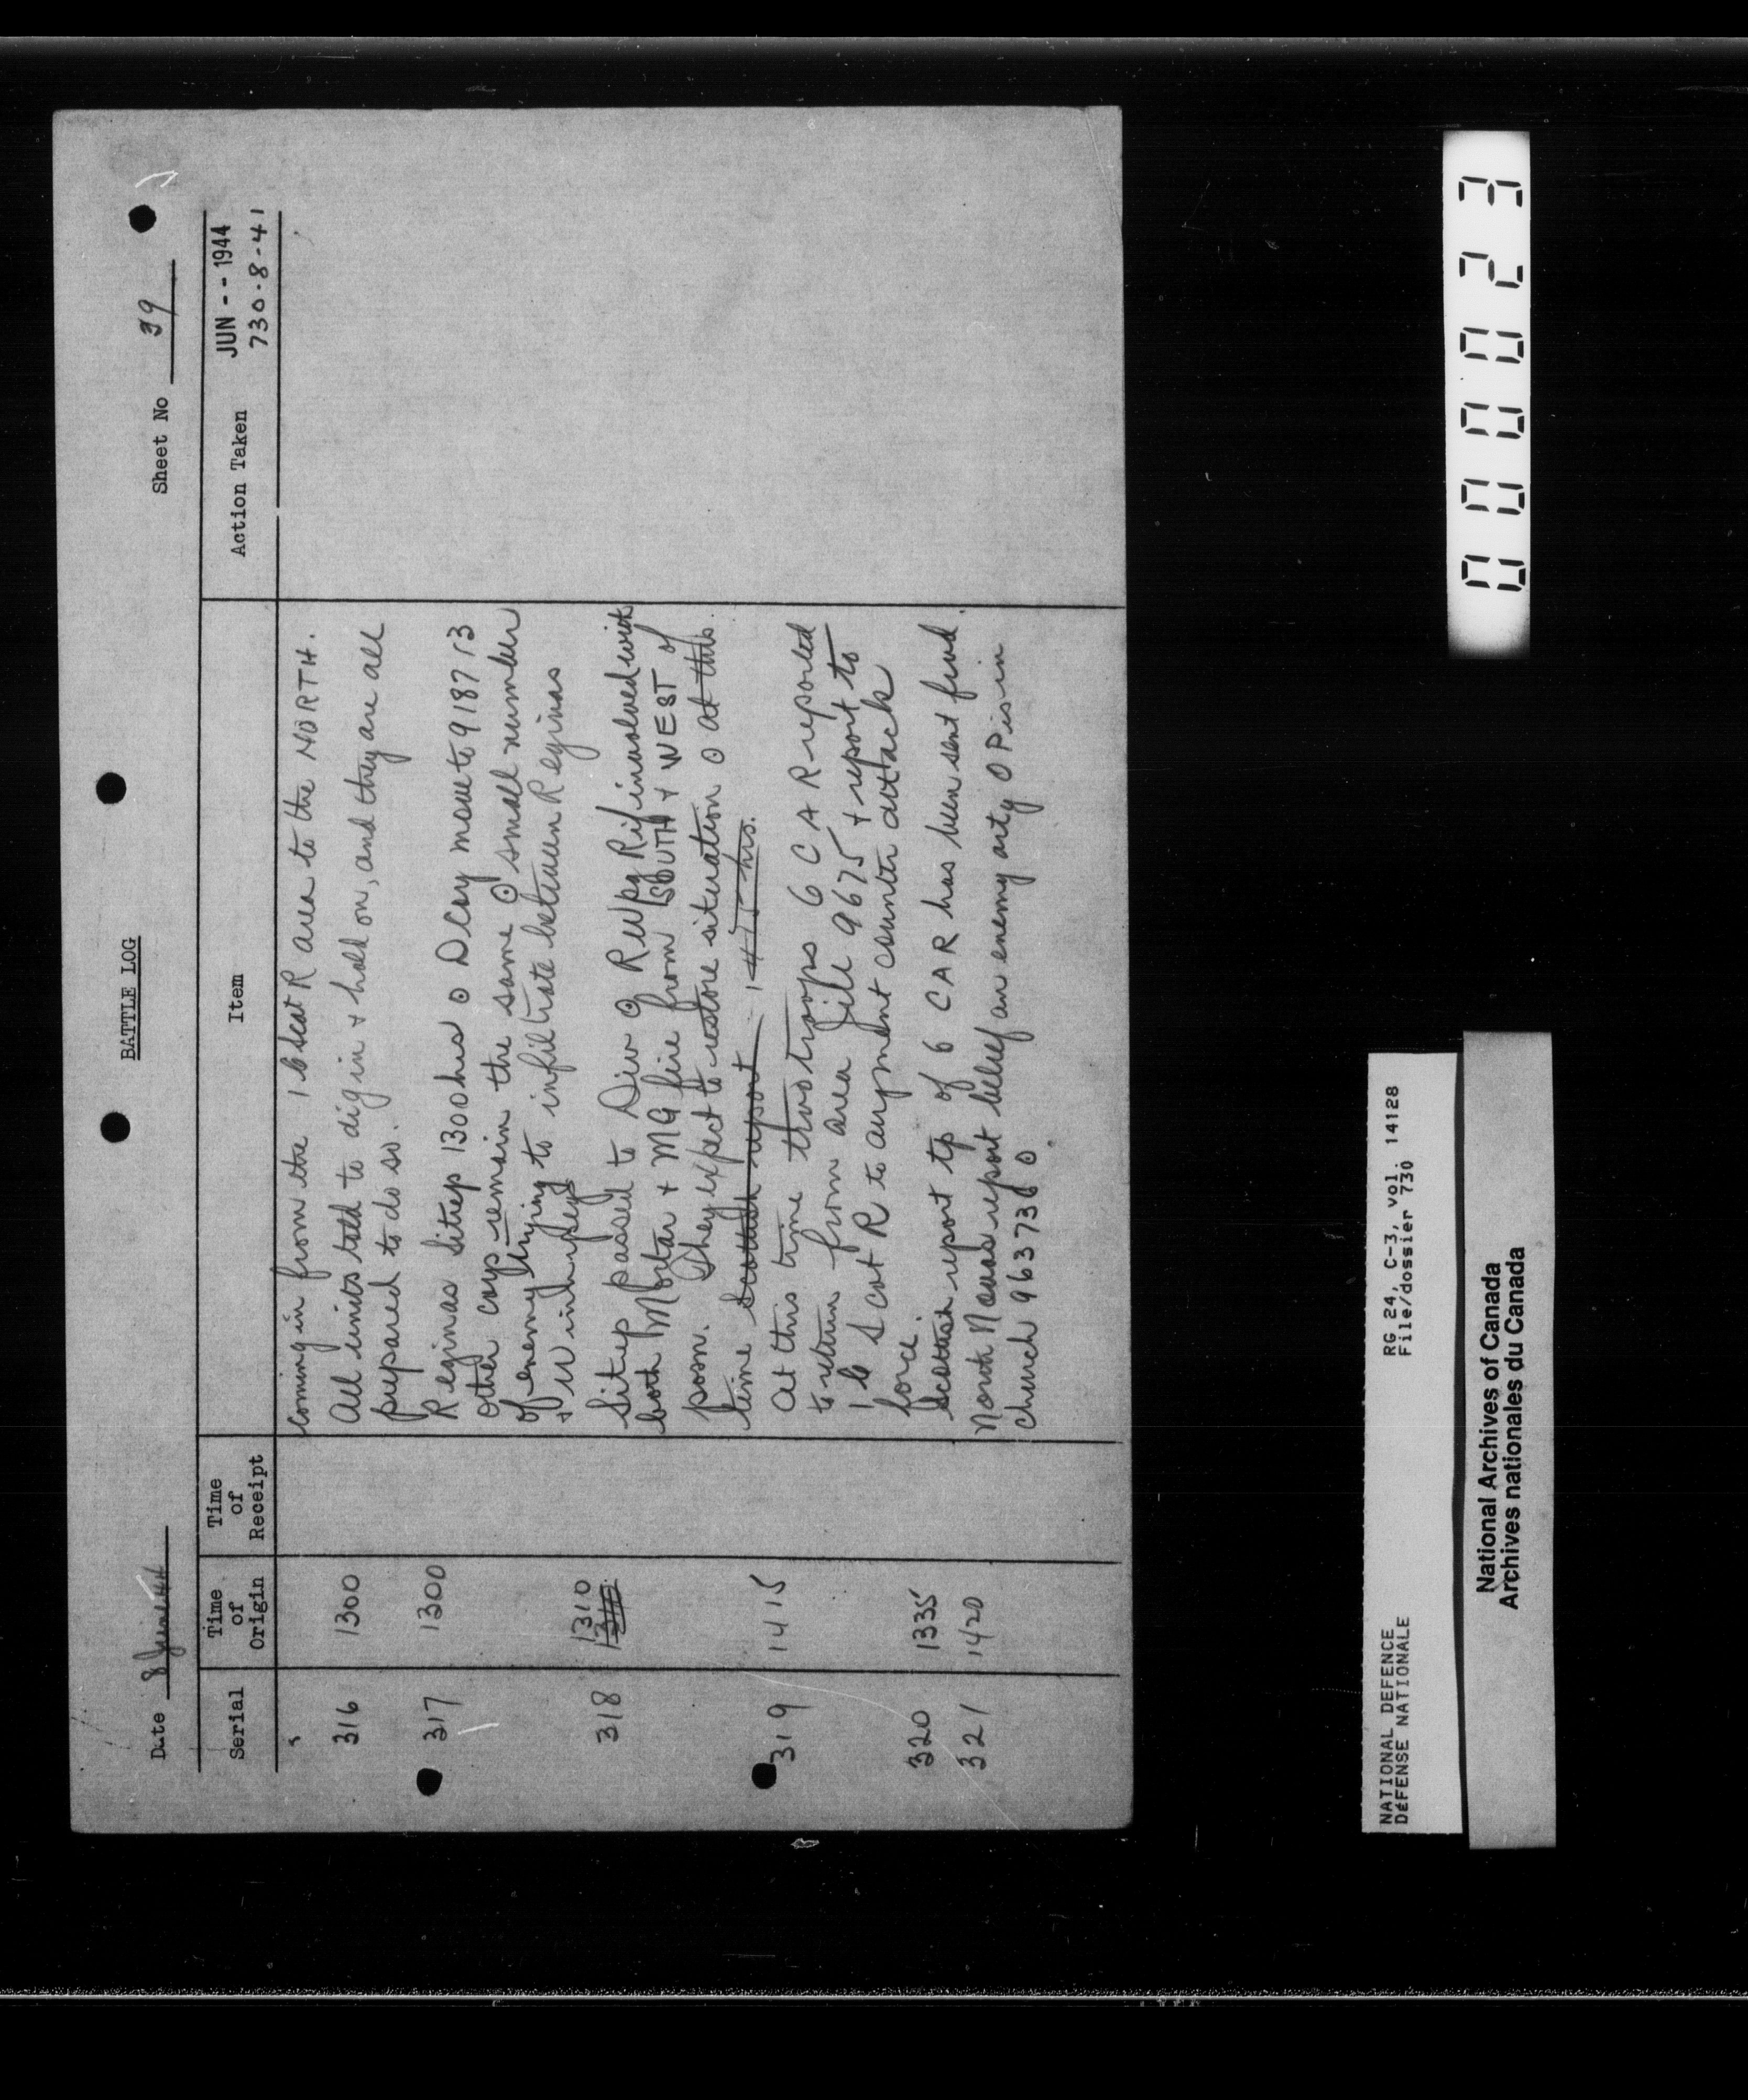 BATTLE LOG
Date 8 June 44
Sheet No 39
Serial
Time of Origin
Time of Receipt
Item
Action Taken
JUN -- 1944
730-8-41
coming in from the 1 C Scot R area to the NORTH.
316 1300 All units told to dig in + hold on, and they are all
prepared to do so.
317 1300 Reginas Sitrep 1300 hrs ⊙ D Coy move to 918713
other coys remain the same ⊙ small number
of enemy trying to infiltrate between Reginas
+ Winnipegs
318 1310 Sitrep passed to Div ⊙ R Wpg Rif involved with
both Mortar + MG fire from SOUTH + WEST of
posn. They expect to restore situation ⊙ at this
time Scottish report 1415 hrs.
319 1415 At this time two troops 6 CAR reported
to return from area Jill 9675 + report to
1 C Scot R to augment counter attack
force.
320 1335 Scottish report tp of 6 CAR has been sent fwd.
321 1420 North Novas report belief an enemy arty OP is in
church 963736 ⊙
000023
NATIONAL DEFENCE
DÉFENSE NATIONALE
RG 24, C-3, vol. 14128
File/dossier 730
National Archives of Canada
Archives nationales du Canada